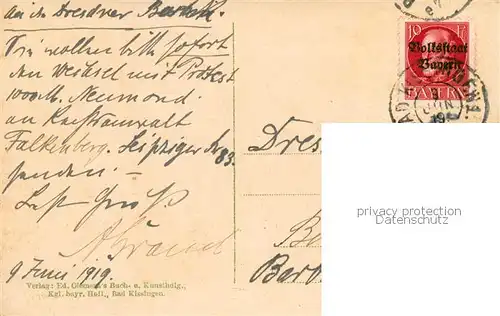 An die Dresdner Bank.
Sie wollen bitte sofort
den Wechsel mit Protest
1000 M. Neumond
an Rechtsanwalt
Falkenberg, Leipziger Str 83
senden. —
Best. Gruß
9 Juni 1919.
Verlag: Ed. Clement's Buch- u. Kunsthdlg.,
Kgl. bayr. Hofl., Bad Kissingen.
10 Pf
Volksstaat
Bayern
BAYERN
9
JUN
19
Dres
Be
Berl
property protection
watermark